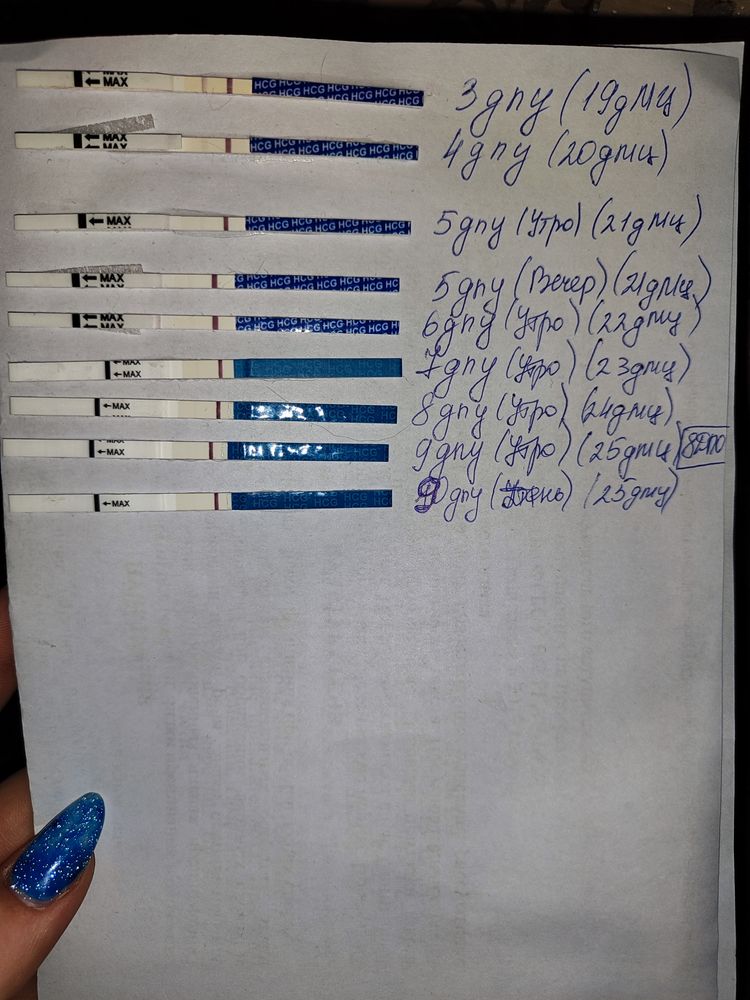 MAX HCG HCG HCG HCG HCG 3дпу (19дмц)
MAX HCG HCG HCG HCG HCG 4дпу (20дмц)
MAX HCG HCG HCG HCG HCG 5дпу (Утро) (21дмц)
MAX HCG HCG HCG HCG HCG 5дпу (Вечер) (21дмц)
MAX HCG HCG HCG HCG HCG 6дпу (Утро) (22дмц)
MAX 7дпу (Утро) (23дмц)
MAX HCG 8дпу (Утро) (24дмц)
MAX HCG 9дпу (Утро) (25дмц) 8дпо
MAX HCG 9дпу (День) (25дмц)